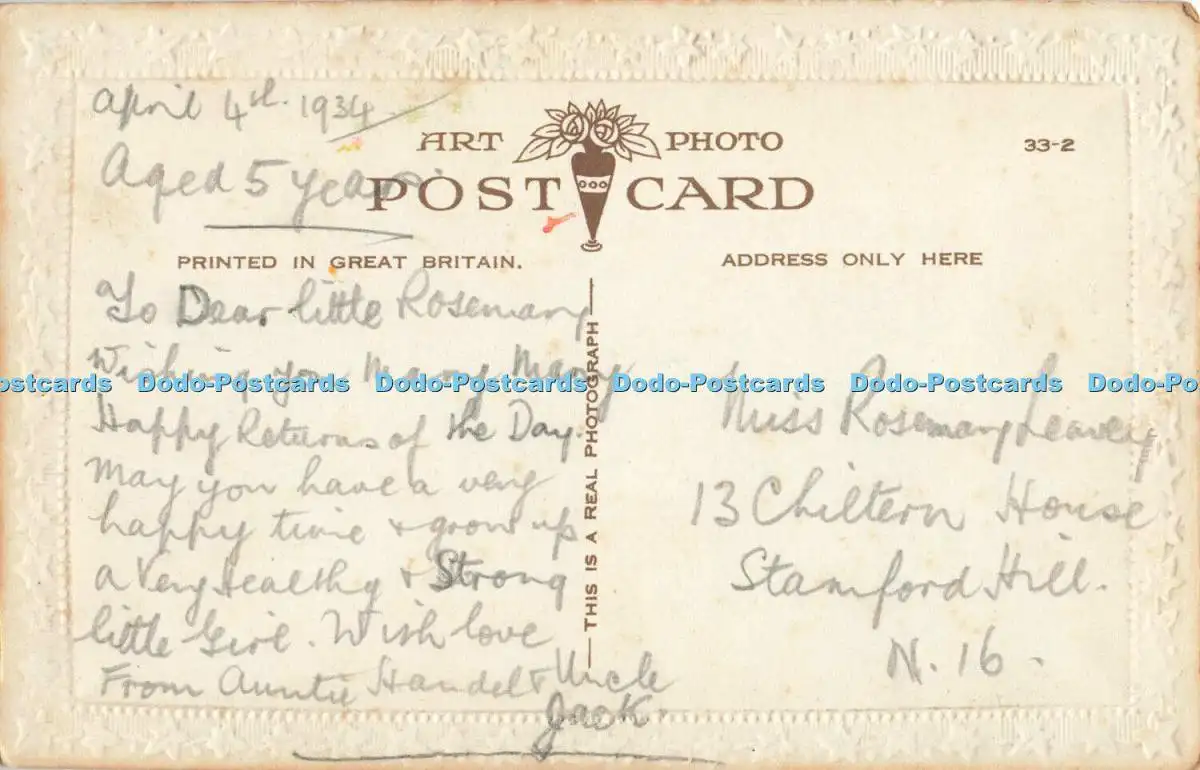 April 4th. 1934
Aged 5 years.
ART PHOTO
POST CARD
33-2
PRINTED IN GREAT BRITAIN.
ADDRESS ONLY HERE
To Dear little Rosemary
Wishing you Many Many
Happy Returns of the Day.
May you have a very
happy time & grow up
a Very Healthy & Strong
little Girl. With love
From Auntie & Uncle
Jack.
THIS IS A REAL PHOTOGRAPH
Miss Rosemary Leavey
13 Chiltern House
Stamford Hill.
N. 16.
Dodo-Postcards Dodo-Postcards Dodo-Postcards Dodo-Postcards Dodo-Postcards Dodo-Postcards